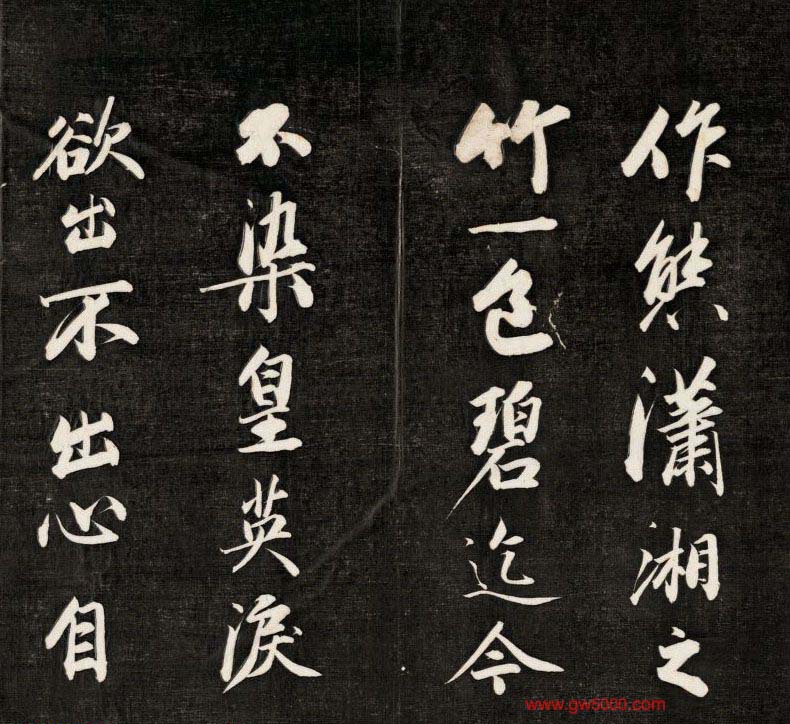 作態瀟湘之
竹一色碧迄今
不染皇英淚
欲出不出心自
www.gw5000.com